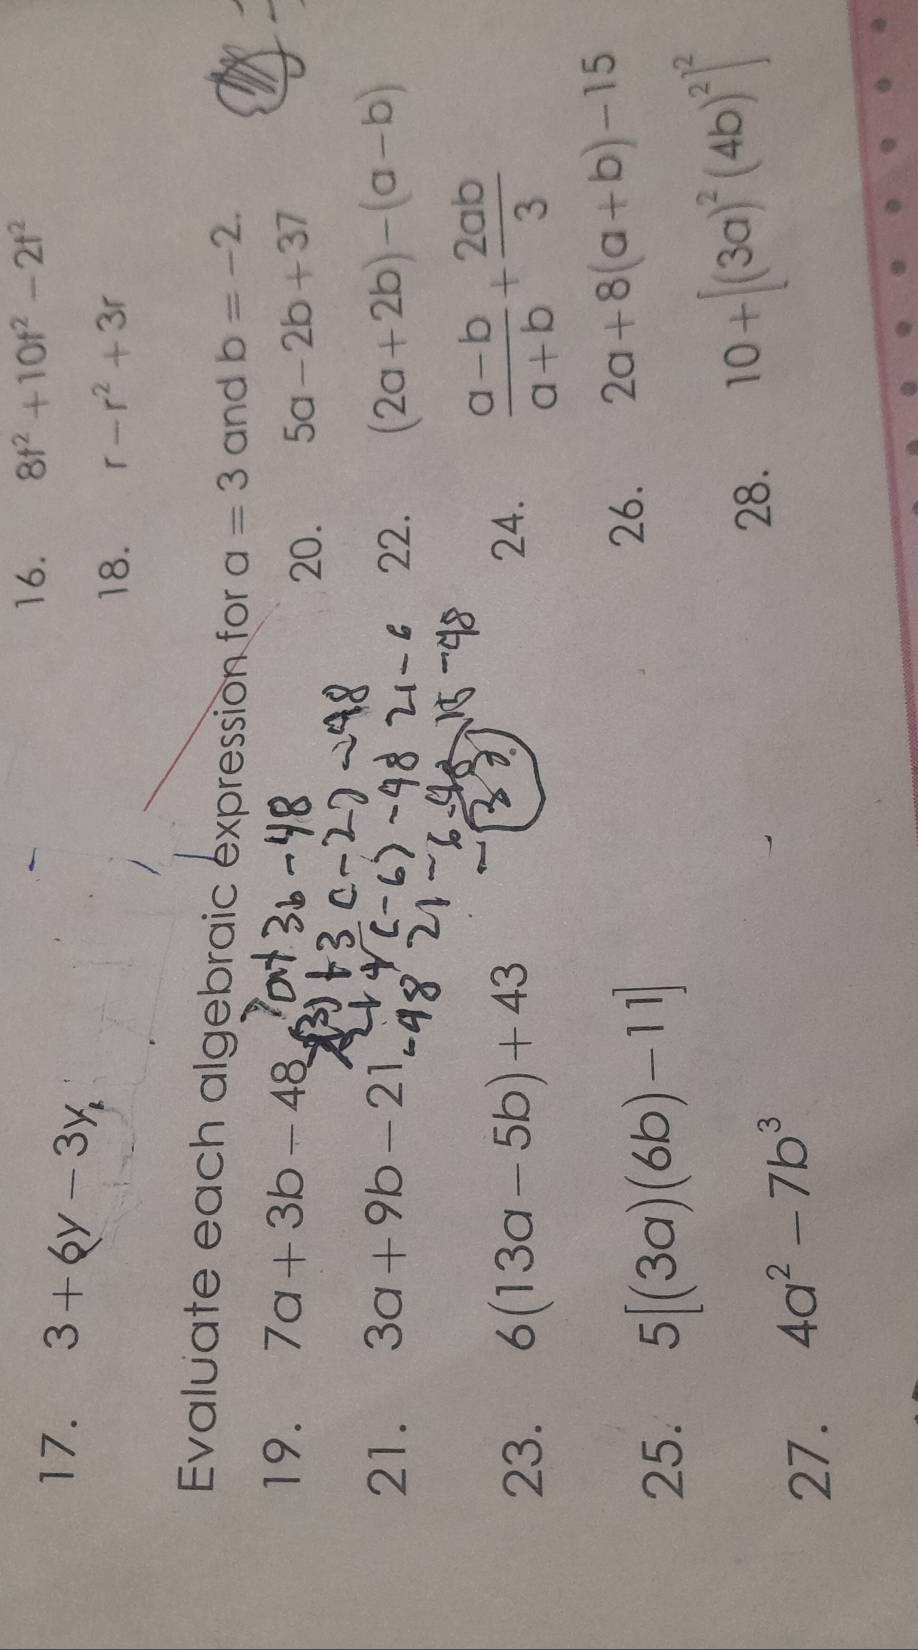 16. 8t² + 10t² − 2t²
17. 3 + 6y − 3y
18. r − r² + 3r
Evaluate each algebraic expression for a = 3 and b = −2.
19. 7a + 3b − 48
7a+3b-48
7(3)+3(-2)-48
21+(-6)-48 21-6
-48 21-6-48 15-48
20. 5a − 2b + 37
21. 3a + 9b − 21
22. (2a + 2b) − (a − b)
23. 6(13a − 5b) + 43
24. a − b / a + b + 2ab / 3
25. 5[(3a)(6b) − 11]
26. 2a + 8(a + b) − 15
27. 4a² − 7b³
28. 10 + [(3a)² (4b)²]²